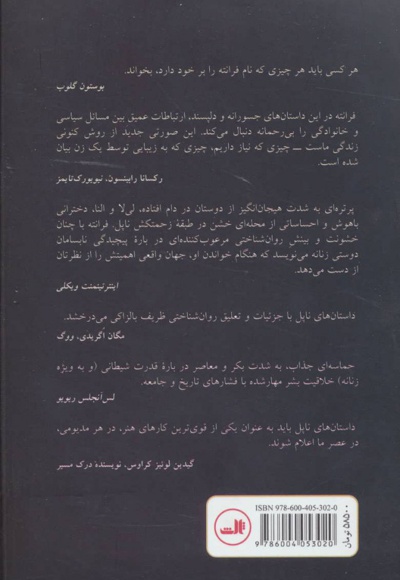 هر کسی باید هر چیزی که نام فرانته را بر خود دارد، بخواند.
بوستون گلوب
فرانته در این داستان‌های جسورانه و دلپسند، ارتباطات عمیق بین مسائل سیاسی
و خانوادگی را بی‌رحمانه دنبال می‌کند. این صورتی جدید از روش کنونی
زندگی ماست ــ چیزی که نیاز داریم، چیزی که به زیبایی توسط یک زن بیان
شده است.
رکسانا رابینسون، نیویورک‌تایمز
پرتره‌ای به شدت هیجان‌انگیز از دوستان در دام افتاده، لی‌لا و النا، دخترانی
باهوش و احساساتی از محله‌ای خشن در طبقهٔ زحمتکش ناپل. فرانته با چنان
خشونت و بینش روان‌شناختی مرعوب‌کننده‌ای در بارهٔ پیچیدگی نابسامان
دوستی زنانه می‌نویسد که هنگام خواندن او، جهان واقعی اهمیتش را از نظرتان
از دست می‌دهد.
اینترتینمنت ویکلی
داستان‌های ناپل با جزئیات و تعلیق روان‌شناختی ظریف بالزاکی می‌درخشد.
مگان اُگریدی، ووگ
حماسه‌ای جذاب، به شدت بکر و معاصر در بارهٔ قدرت شیطانی (و به ویژه
زنانه) خلاقیت بشر مهارشده با فشارهای تاریخ و جامعه.
لس‌آنجلس ریویو
داستان‌های ناپل باید به عنوان یکی از قوی‌ترین کارهای هنر، در هر مدیومی،
در عصر ما اعلام شوند.
گیدین لوئیز کراوس، نویسندهٔ درک مسیر
ISBN 978-600-405-302-0
9 786004 053020
ثالث
۵۸۵۰۰ تومان